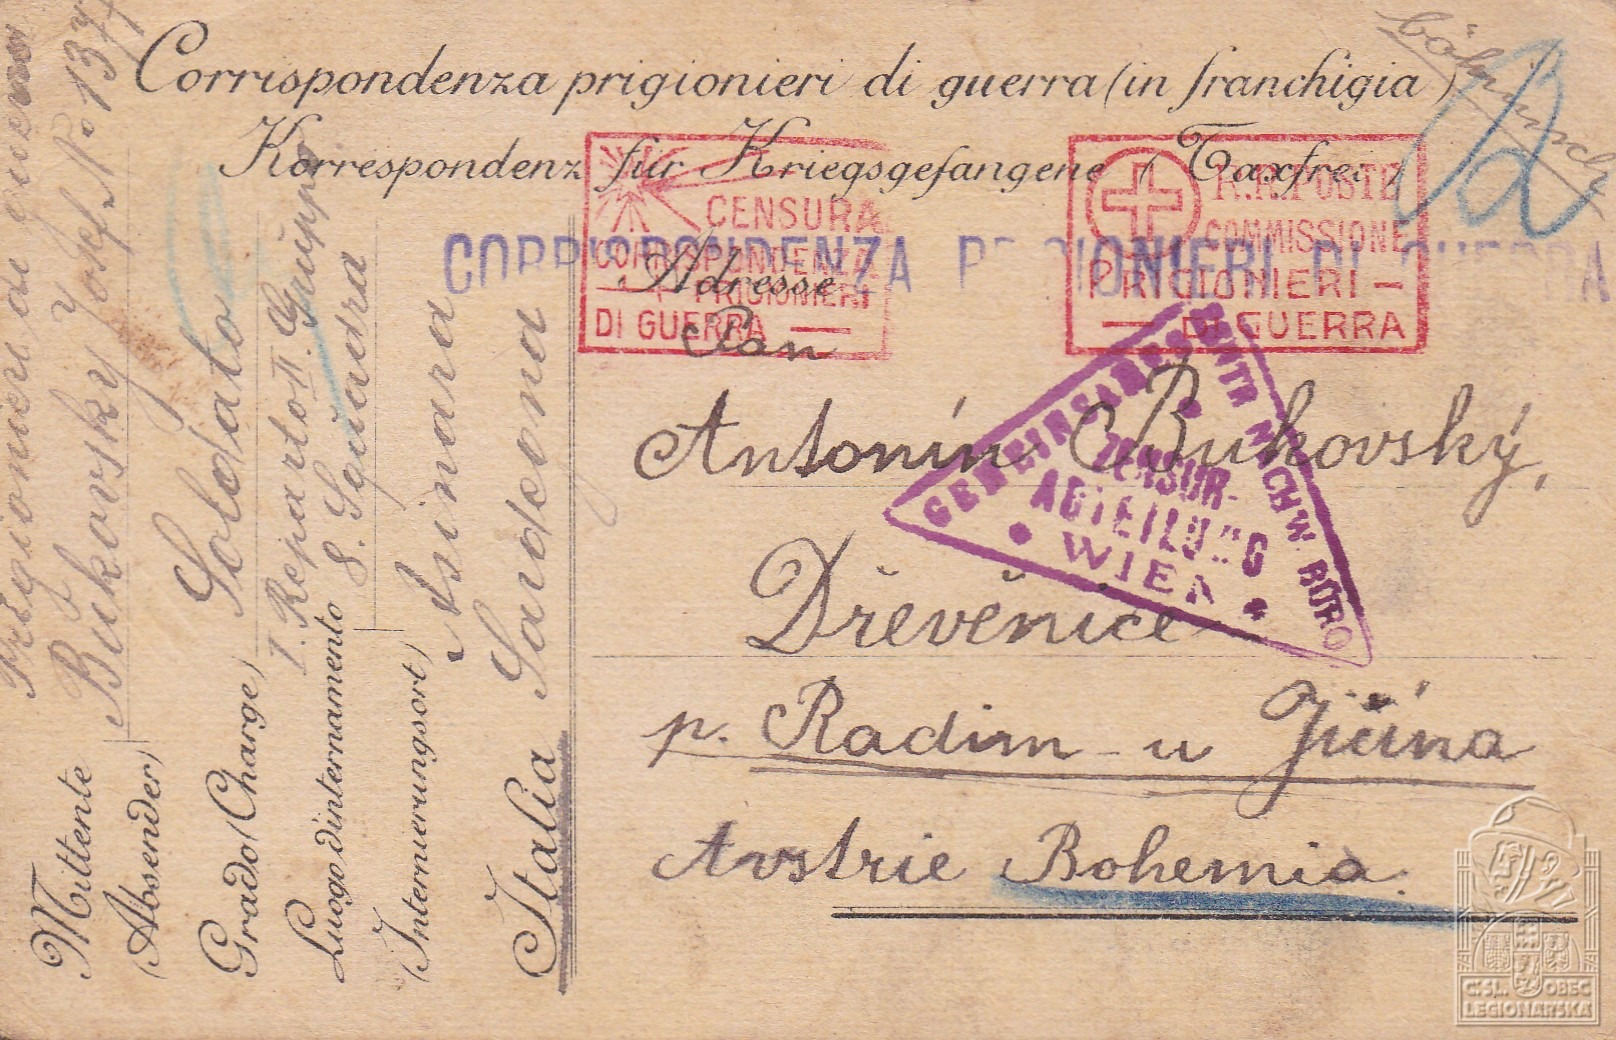 Corrispondenza prigionieri di guerra (in franchigia)
Korrespondenz für Kriegsgefangene (Taxfrei)
CORRISPONDENZA PRIGIONIERI DI GUERRA
CENSURA
CORRISPONDENZA
PRIGIONIERI
DI GUERRA
R.R. POSTE
COMMISSIONE
PRIGIONIERI
DI GUERRA
Adresse
Pan
Antonín Bukovský,
Dřevěnice
p. Radim - u Jičína
Avstrie Bohemia.
GEMEINSAMES ZENTR NACHW. BÜRO
ZENSUR-
ABTEILUNG
WIEN
Prigionieri di guerra
Mittente Bukovský Josef No 137
(Absender)
Grado (Charge) Soldato
I. Reparto II. Gruppo
Luogo d'internamento 8. Squadra
(Internierungsort) Asinara
Sardegna
Italia
Č.SL. OBEC
LEGIONÁŘSKÁ